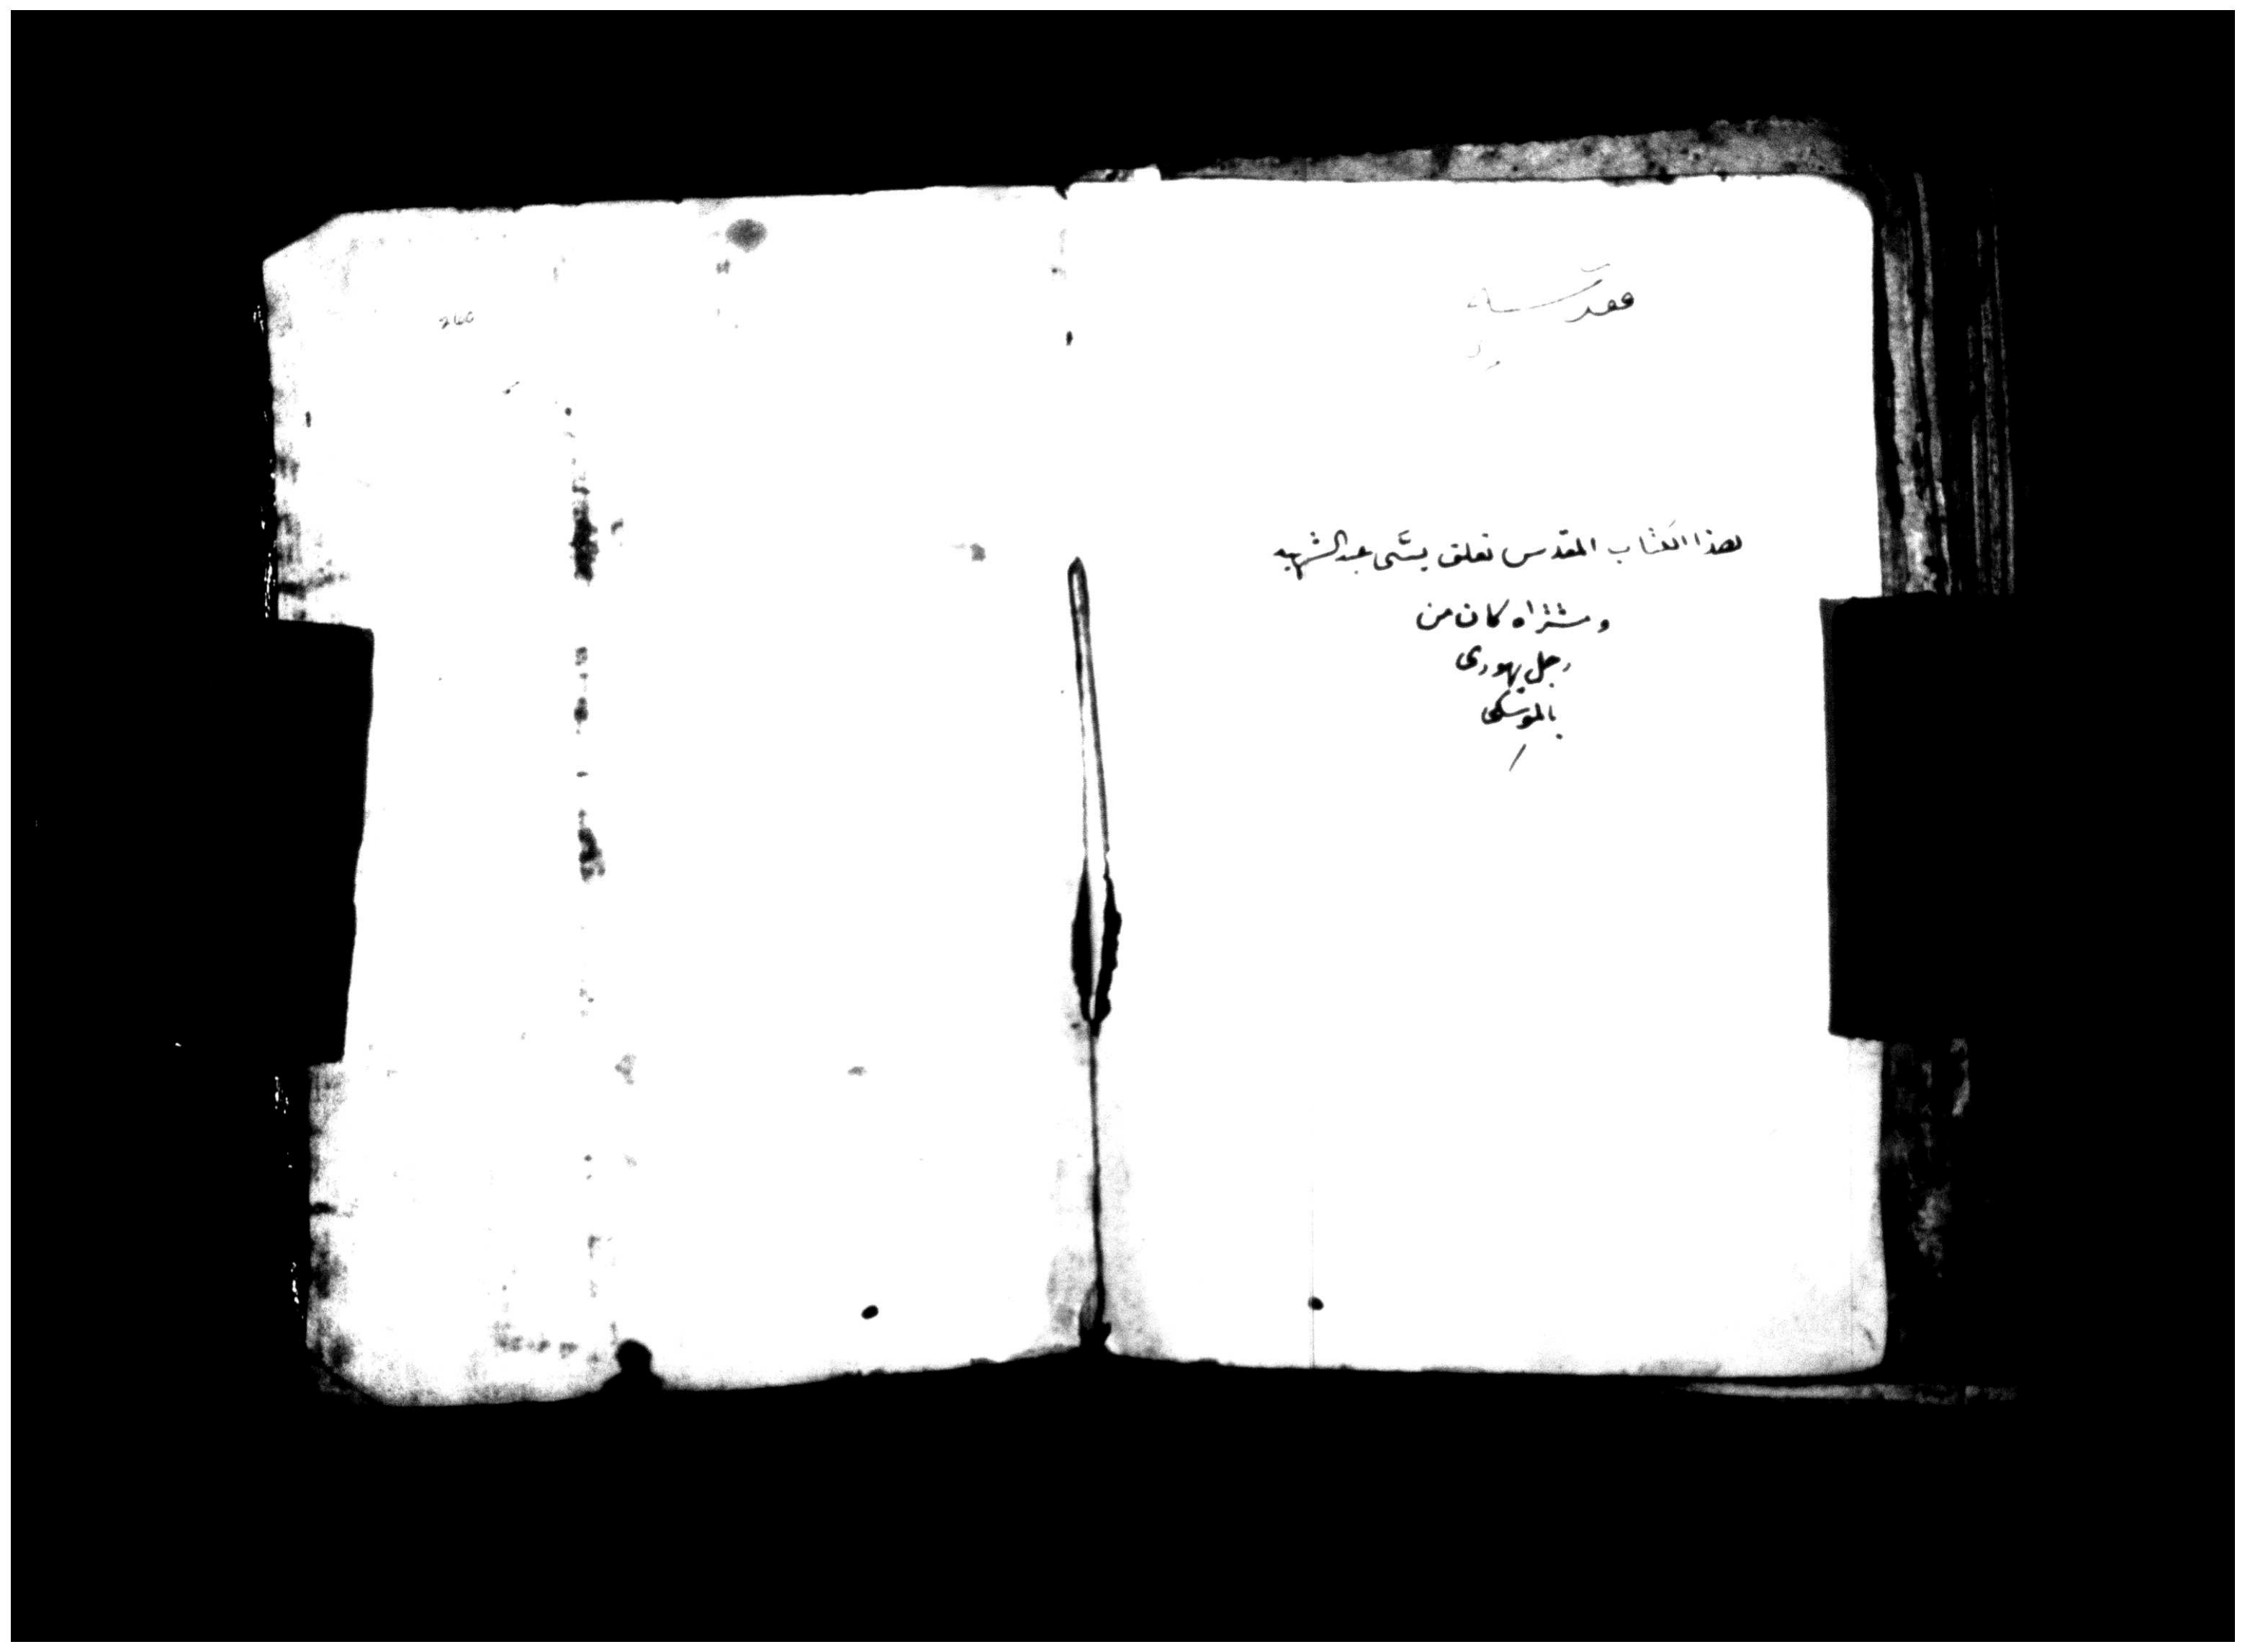 هذا الكتاب المقدس تعلق يسَّى عبد الشهيد
ومشتراه كان من
رجل يهودى
بالموسكى